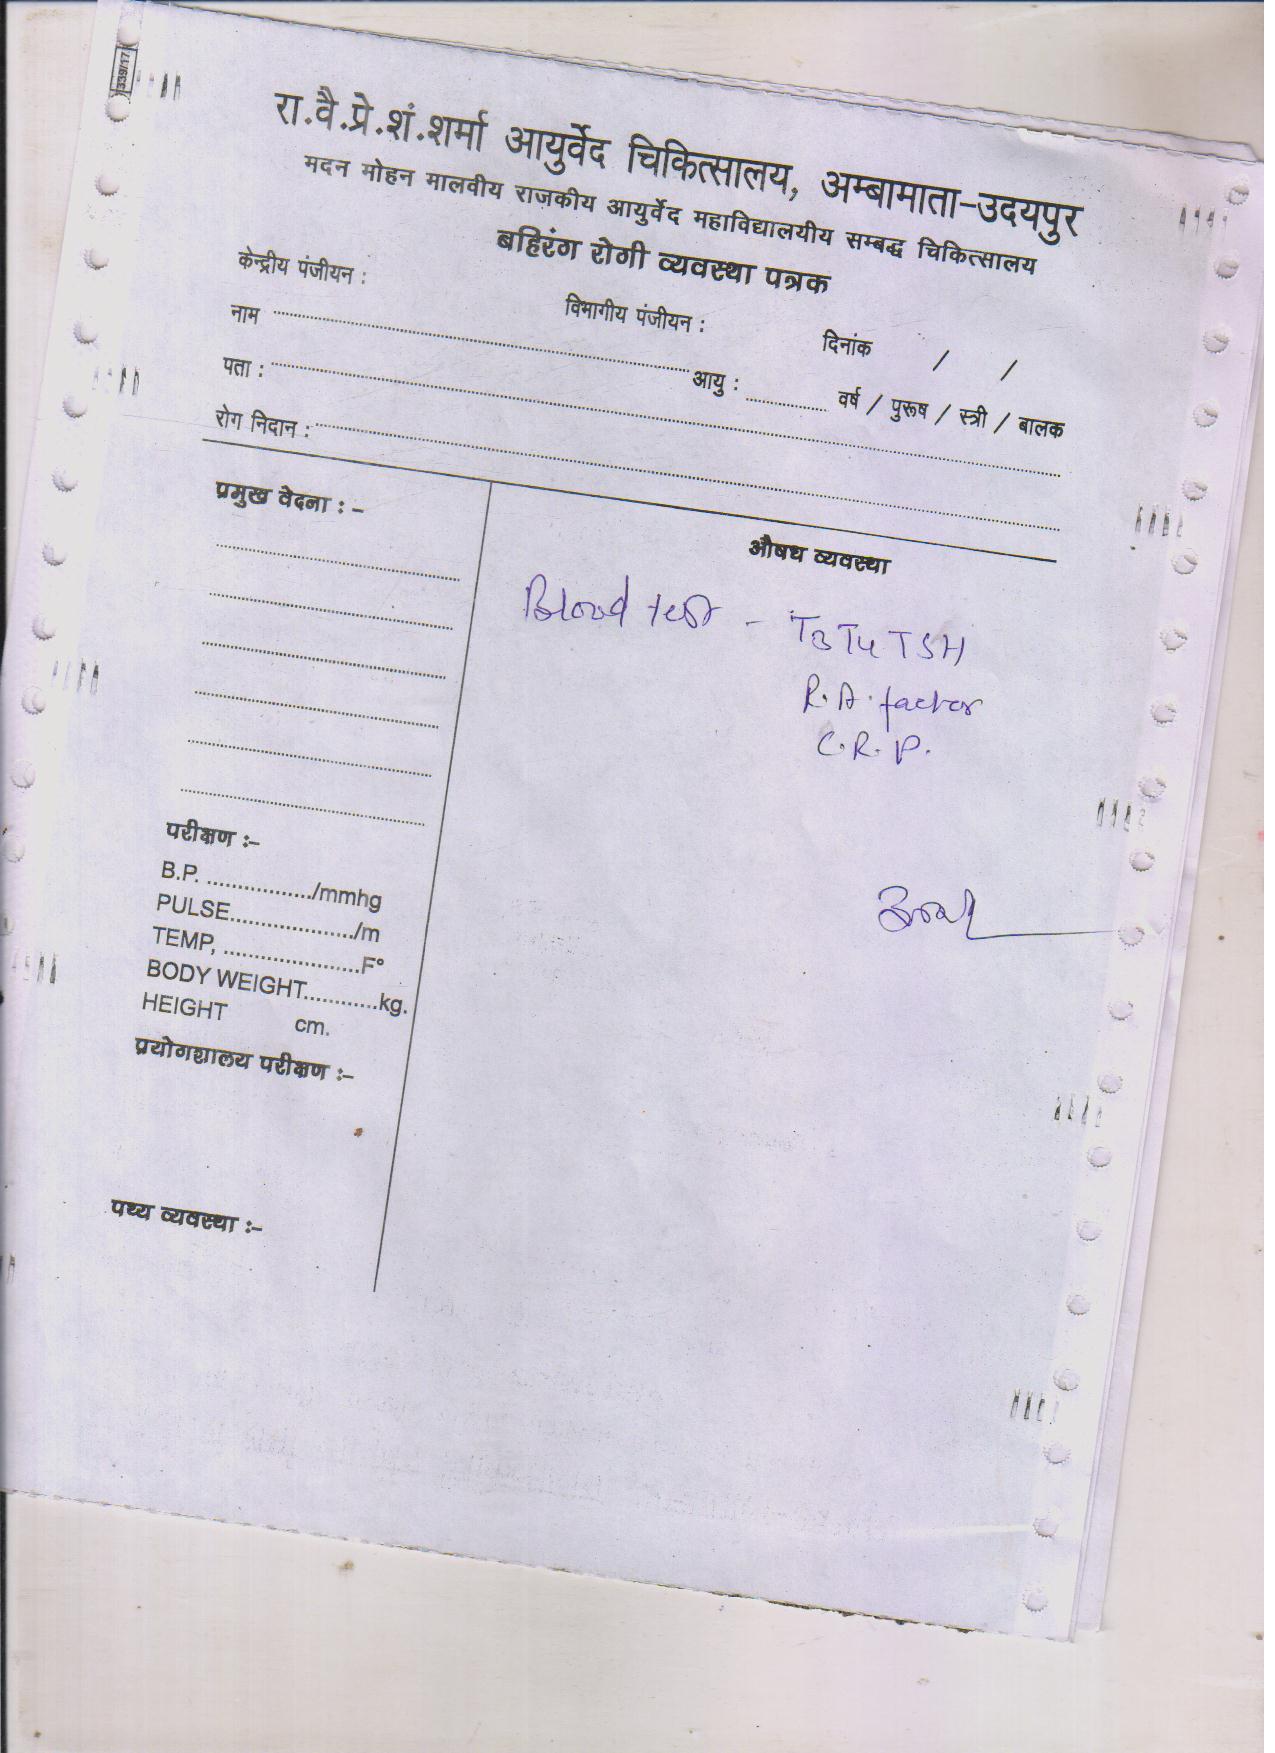 339/17
रा.वै.प्रे.शं.शर्मा आयुर्वेद चिकित्सालय, अम्बामाता-उदयपुर
मदन मोहन मालवीय राजकीय आयुर्वेद महाविद्यालयीय सम्बद्ध चिकित्सालय
बहिरंग रोगी व्यवस्था पत्रक
केन्द्रीय पंजीयन : विभागीय पंजीयन : दिनांक / /
नाम ........ आयु : ........ वर्ष / पुरूष / स्त्री / बालक
पता : ........
रोग निदान : ........
प्रमुख वेदना : -
औषध व्यवस्था
Blood test - T3 T4 TSH
R.A. factor
C.R.P.
परीक्षण :-
B.P. ................./mmhg
PULSE..................../m
TEMP, ......................F°
BODY WEIGHT............kg.
HEIGHT cm.
प्रयोगशालय परीक्षण :-
पथ्य व्यवस्था :-